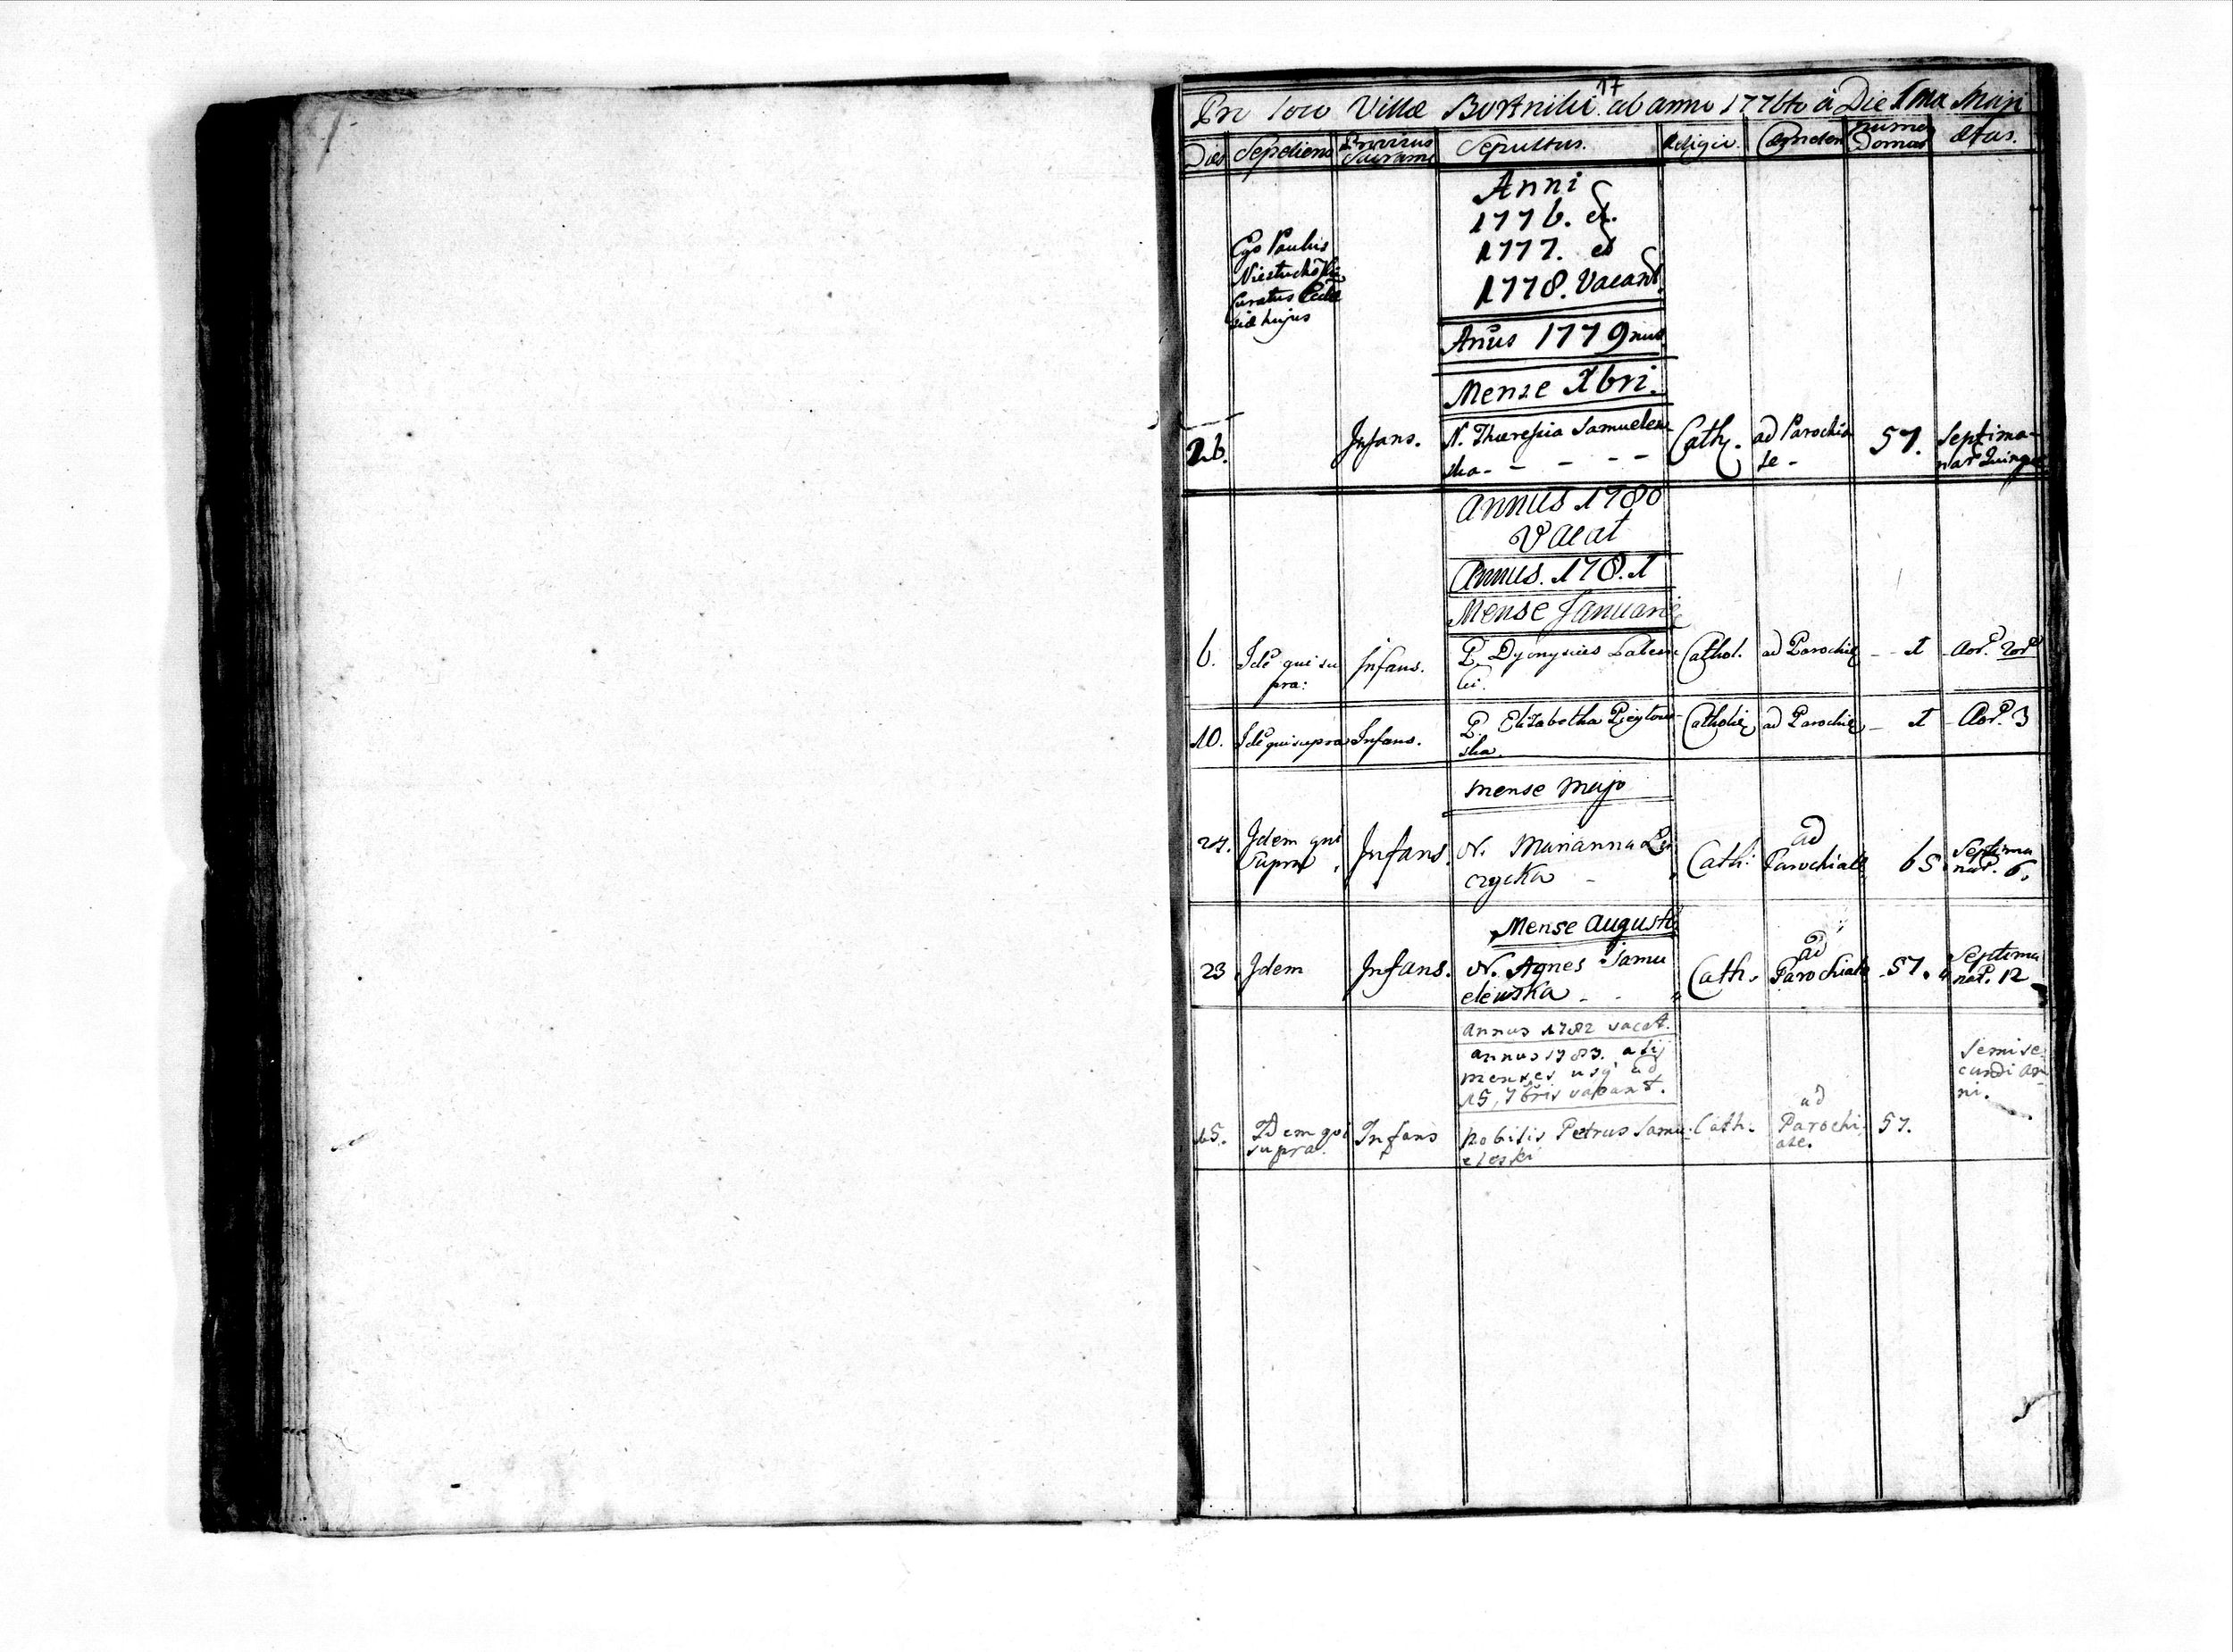 17
Pro loco Villæ Bortniki ab anno 1776to à Die 1ma Maji
Dies Sepeliens Provisus Sacrame Sepultus. Religio. Numer Domus ætas.
Anni
1776. et
1777. et
1778. Vacant.
Ego Paulus
Curatus Eccle
siæ hujus
Añus 1779nus
Mense Xbri.
26. Infans. N. Theresia Samuelew
ska - - - - Cath. ad Parochia
le - 57. Septima-
nar Quinque
Annus 1780
Vacat
Annus. 178.1
Mense Januarij
6. Idẽ qui su
pra: Infans. P. Dyonysius
ki. Cathol. ad Parochi - 1
10. Idẽ qui supra Infans. P. Elizabetha
ska. Catholi ad Parochi - 1 3
mense Majo
27. Idem qui
supra, Infans. N. Marianna
czycka - Cath: ad
Parochiale 65. Septima
nar. 6.
Mense Augusti
23 Idem Infans. N. Agnes Samu
elewska - - Cath. ad
Parochiale 57. Septima
nar. 12
Annus 1782 vacat.
annus 1783. alij
menses usq ad
15, 7bris vacant.
15. Idem qui
supra. Infans Nobilis Petrus Samu-
eloski Cath: ad
Parochi
ale. 57. Semise
cundi an
ni.